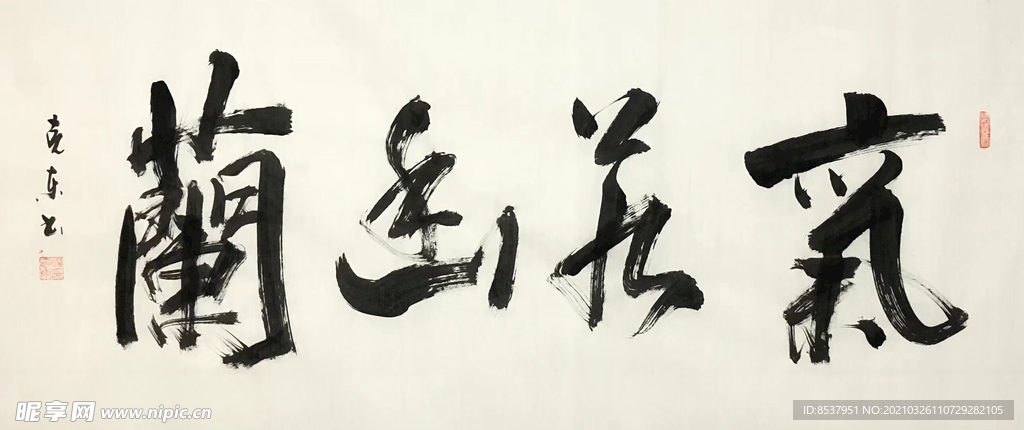 氣若幽蘭
克东书
昵享网 www.nipic.cn
ID:8537951 NO:20210326110729282105